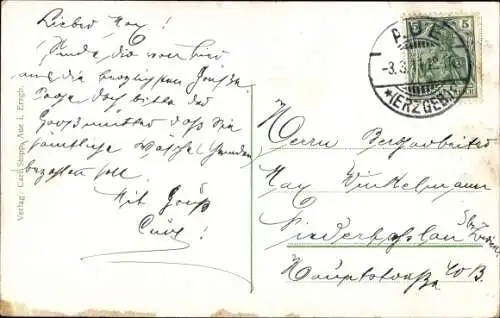 Lieber Max!
Sende dir von hier
aus die herzlichsten Grüße.
Sage doch bitte der
Großmutter daß sie
sämtliche Wäsche
bezahlen soll.
Mit Gruß
Verlag: Carl Aue i. Erzgb.
5 5
AUE
-3.3.
*(ERZGEB.)*
Herrn Bergarbeiter
Max Winkelmann
Niederhaßlau
Hauptstraße 40 B.